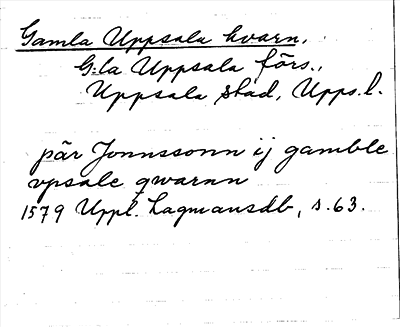 Gamla Uppsala kvarn,
G:la Uppsala förs.,
Uppsala stad, Upps.l.
pär Jonnssonn ij gamble
vpsale qwarnn
1579 Uppl. Lagmansdb, s.63.